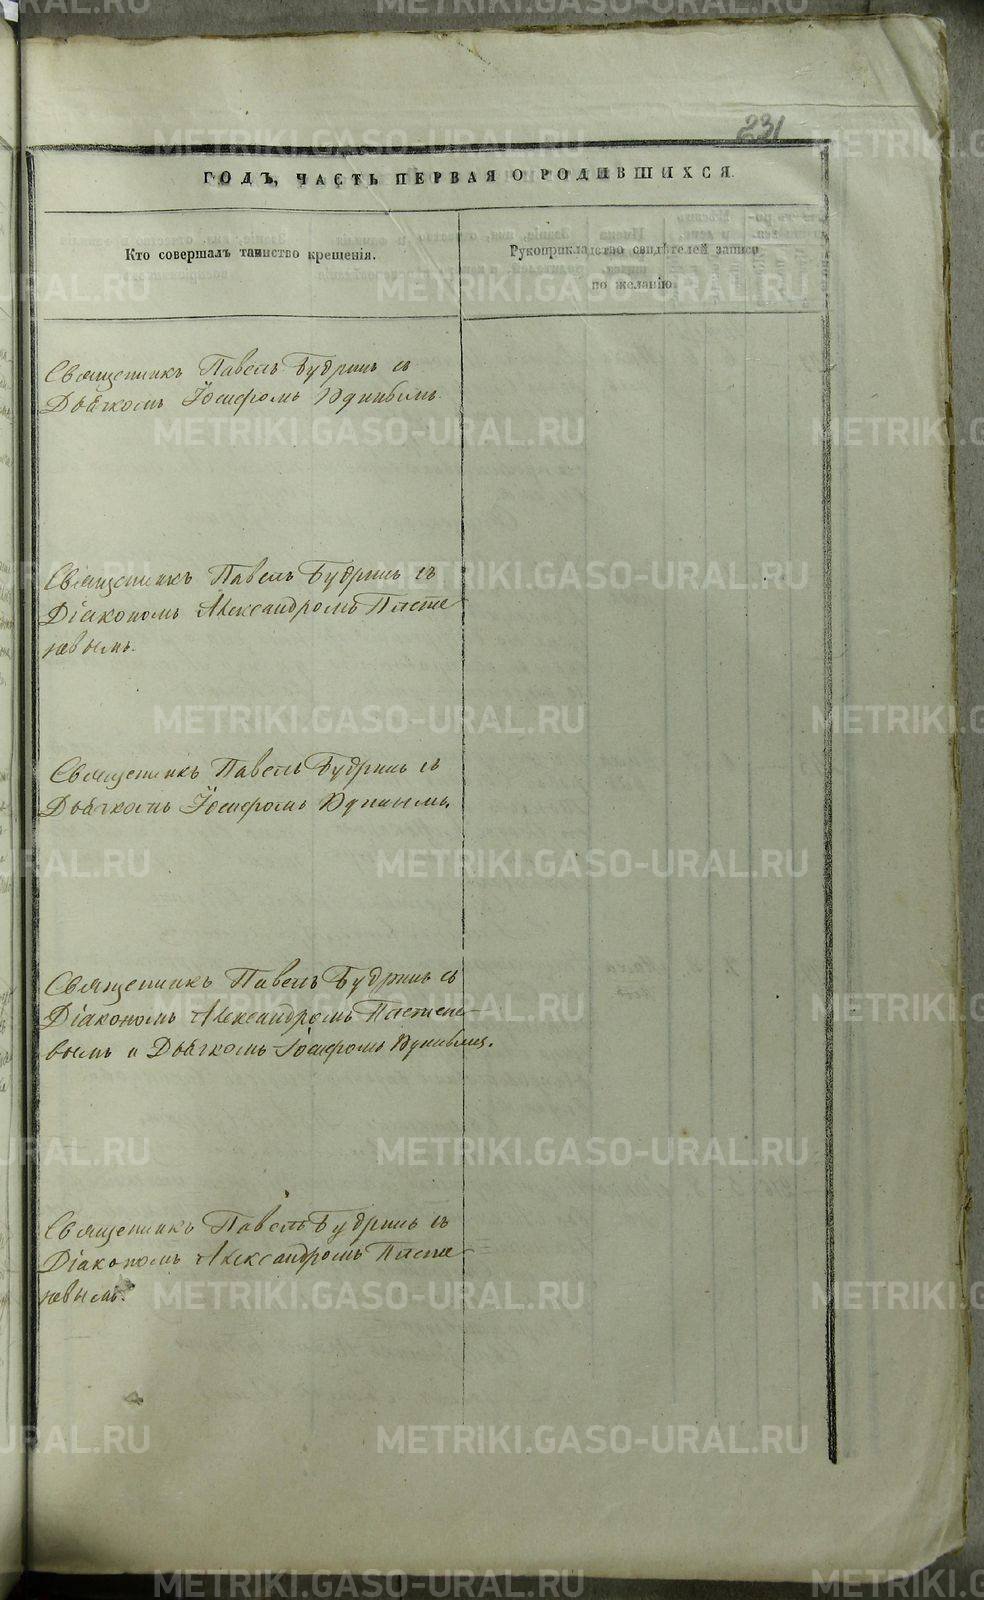 231
ГОДЪ, ЧАСТЬ ПЕРВАЯ О РОДИВШИХСЯ.
Кто совершалъ таинство крещенія.
Рукоприкладство свидѣтелей записи
по желанію.
Священникъ Павелъ Будринъ съ
Дьячкомъ Іосифомъ
Священникъ Павелъ Будринъ съ
Діакономъ Александромъ
Священникъ Павелъ Будринъ съ
Дьячкомъ Іосифомъ
Священникъ Павелъ Будринъ съ
Діакономъ Александромъ
вымъ и Дьячкомъ Іосифомъ
Священникъ Павелъ Будринъ съ
Діакономъ Александромъ
METRIKI.GASO-URAL.RU